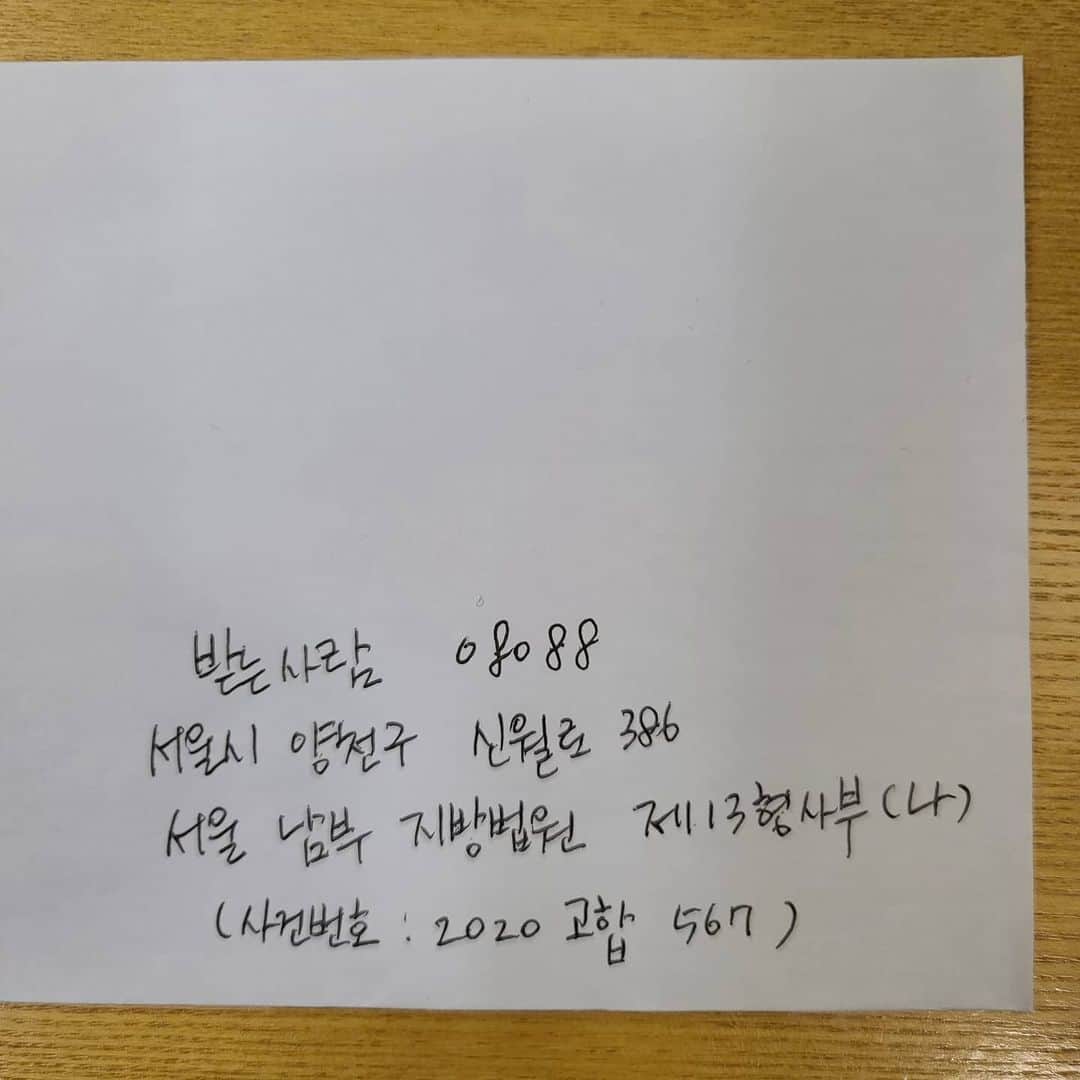 받는사람 08088
서울시 양천구 신월로 386
서울 남부 지방법원 제13형사부(나)
(사건번호 : 2020 고합 567)